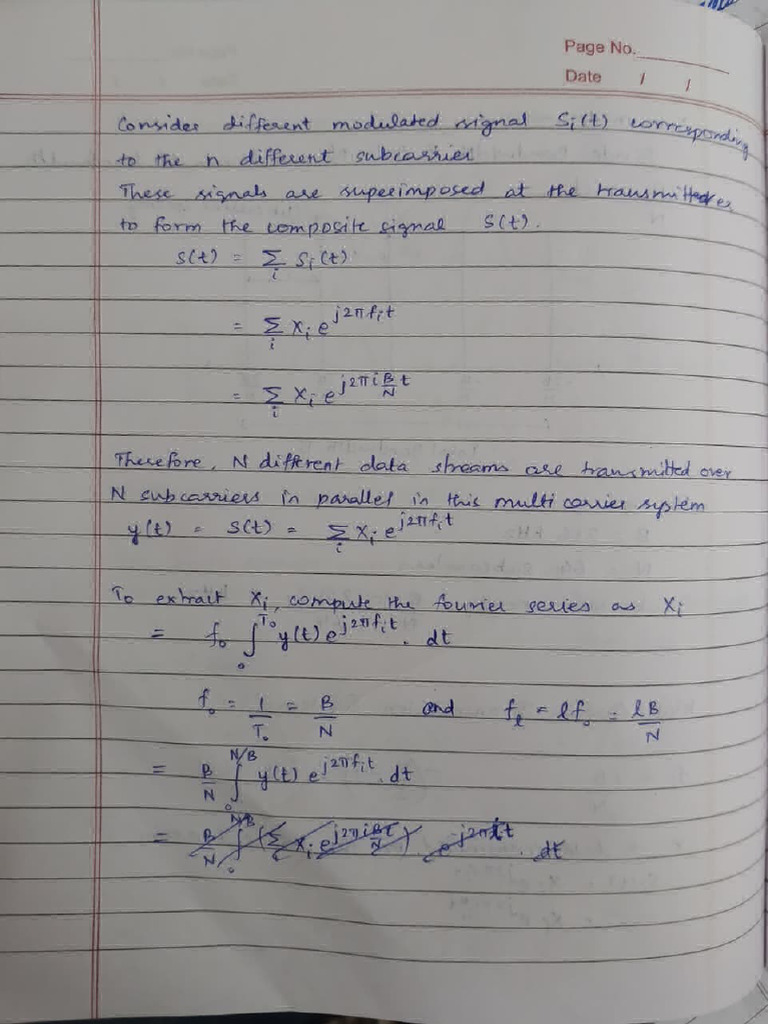 Page No.
Date / /
Consider different modulated signal Si(t) corresponding
to the n different subcarrier
These signals are superimposed at the
to form the composite signal S(t).
s(t) = Σ_i Si(t)
= Σ_i Xi e^{j2πfit}
= Σ_i Xi e^{j2πi B/N t}
Therefore, N different data streams are transmitted over
N subcarriers in parallel in this multi carrier system
y(t) = S(t) = Σ_i Xi e^{j2πfit}
To extrait Xi, compute the fourier series as Xi
= f₀ ∫₀^{T₀} y(t) e^{j2πfit} . dt
f₀ = 1/T₀ = B/N and f_l = lf₀ = lB/N
= B/N ∫₀^{N/B} y(t) e^{j2πfit} . dt
= B/N ∫₀^{N/B} (Σ_i Xi e^{j2πi B/N t}) dt